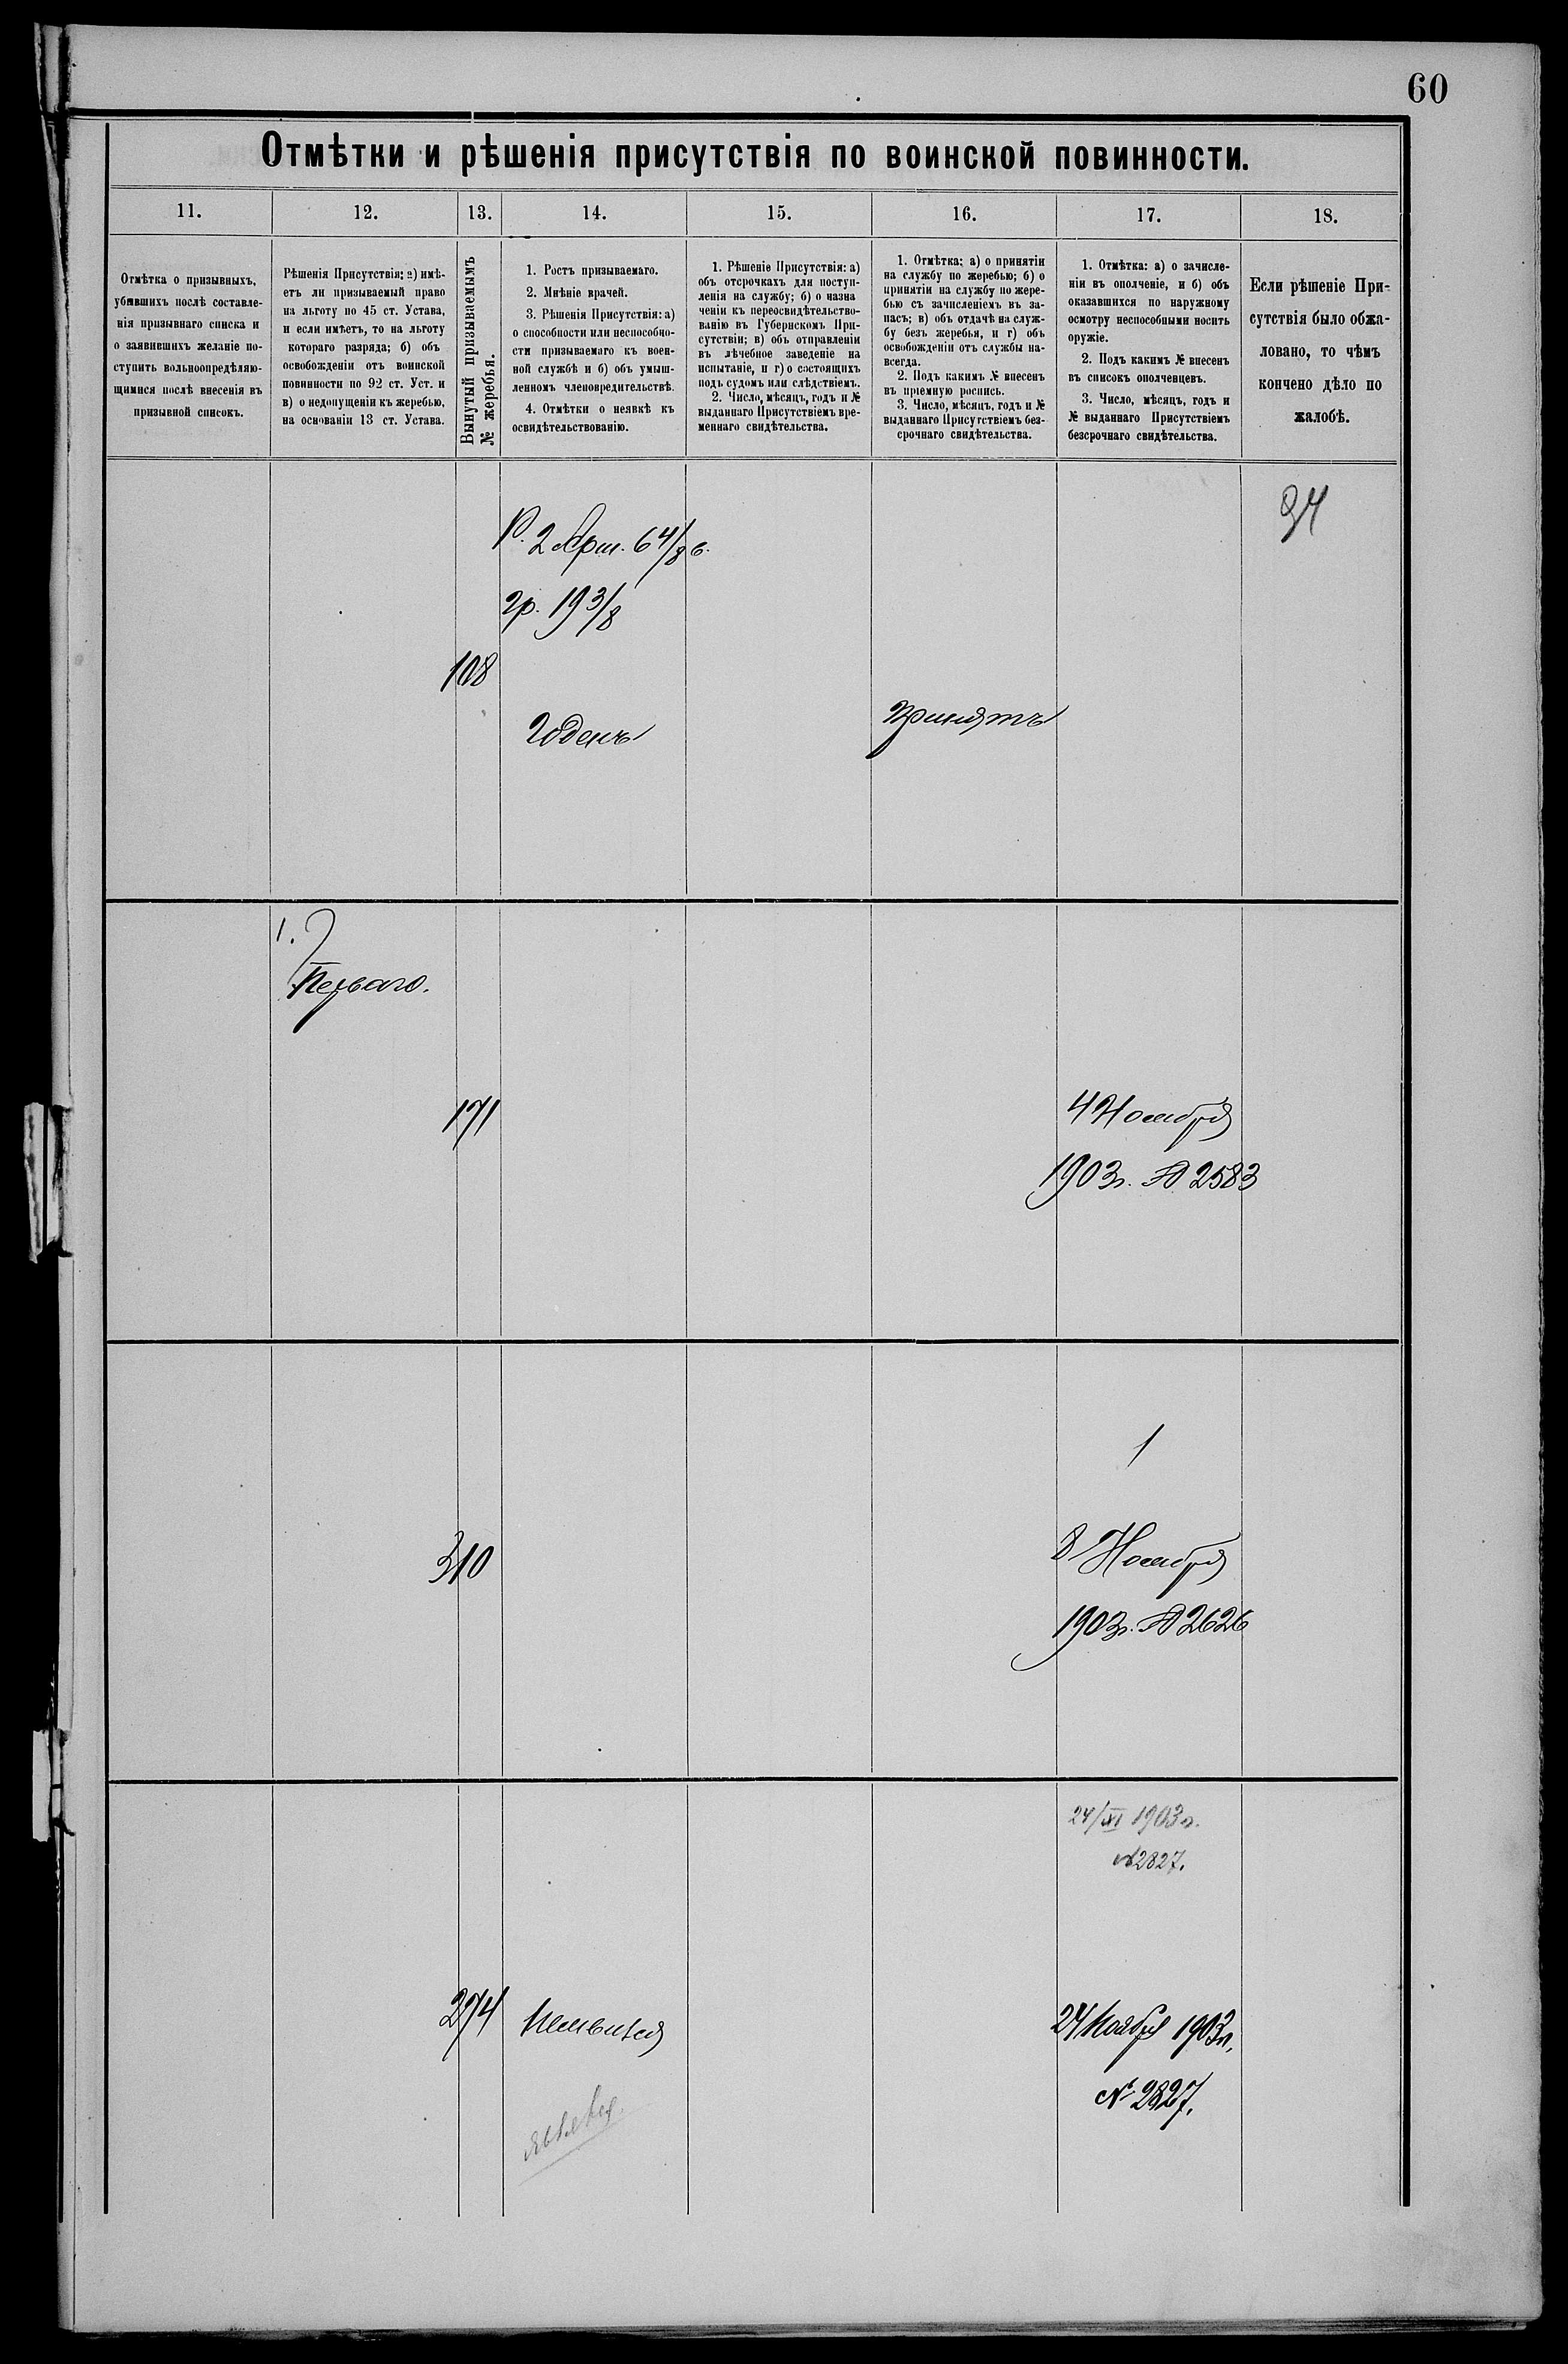 60
Отмѣтки и рѣшенія присутствія по воинской повинности.
11.
12.
13.
14.
15.
16.
17.
18.
Отмѣтка о призывныхъ,
убывшихъ послѣ составле-
нія призывнаго списка и
о заявившихъ желаніе по-
ступить вольноопредѣляю-
щимися послѣ внесенія въ
призывной списокъ.
Рѣшенія Присутствія: а) имѣ-
етъ ли призываемый право
на льготу по 45 ст. Устава,
и если имѣетъ, то на льготу
котораго разряда; б) объ
освобожденіи отъ воинской
повинности по 92 ст. Уст. и
в) о недопущеніи къ жеребью,
на основаніи 13 ст. Устава.
Вынутый призываемымъ
№ жеребья.
1. Ростъ призываемаго.
2. Мнѣніе врачей.
3. Рѣшенія Присутствія: а)
о способности или неспособно-
сти призываемаго къ воен-
ной службѣ и б) объ умыш-
ленномъ членовредительствѣ.
4. Отмѣтки о неявкѣ къ
освидѣтельствованію.
1. Рѣшеніе Присутствія: а)
объ отсрочкахъ для поступ-
ленія на службу; б) о назна
ченіи къ переосвидѣтельство-
ванію въ Губернскомъ При-
сутствіи; в) объ отправленіи
въ лѣчебное заведеніе на
испытаніе, и г) о состоящихъ
подъ судомъ или слѣдствіемъ.
2. Число, мѣсяцъ, годъ и №
выданнаго Присутствіемъ вре-
меннаго свидѣтельства.
1. Отмѣтка: а) о принятіи
на службу по жеребью; б) о
принятіи на службу по жере-
бью съ зачисленіемъ въ за-
пасъ; в) объ отдачѣ на служ-
бу безъ жеребья, и г) объ
освобожденіи отъ службы на-
всегда.
2. Подъ какимъ № внесенъ
въ пріемную роспись.
3. Число, мѣсяцъ, годъ и №
выданнаго Присутствіемъ без-
срочнаго свидѣтельства.
1. Отмѣтка: а) о зачисле-
ніи въ ополченіе, и б) объ
оказавшихся по наружному
осмотру неспособными носить
оружіе.
2. Подъ какимъ № внесенъ
въ списокъ ополченцевъ.
3. Число, мѣсяцъ, годъ и
№ выданнаго Присутствіемъ
безсрочнаго свидѣтельства.
Если рѣшеніе При-
сутствія было обжа-
ловано, то чѣмъ
кончено дѣло по
жалобѣ.
Р. 2 Арш. 6 4/8 в.
гр. 19 3/8
108
Годенъ
принятъ
34
1.
Перваго.
171
4 Ноября
1903 г. № 2583
1
310
8 Ноября
1903 г. № 2626
24/XI 1903 г.
№ 2827.
274
Неявился
явился
24 Ноября 1903 г.
№ 2827.